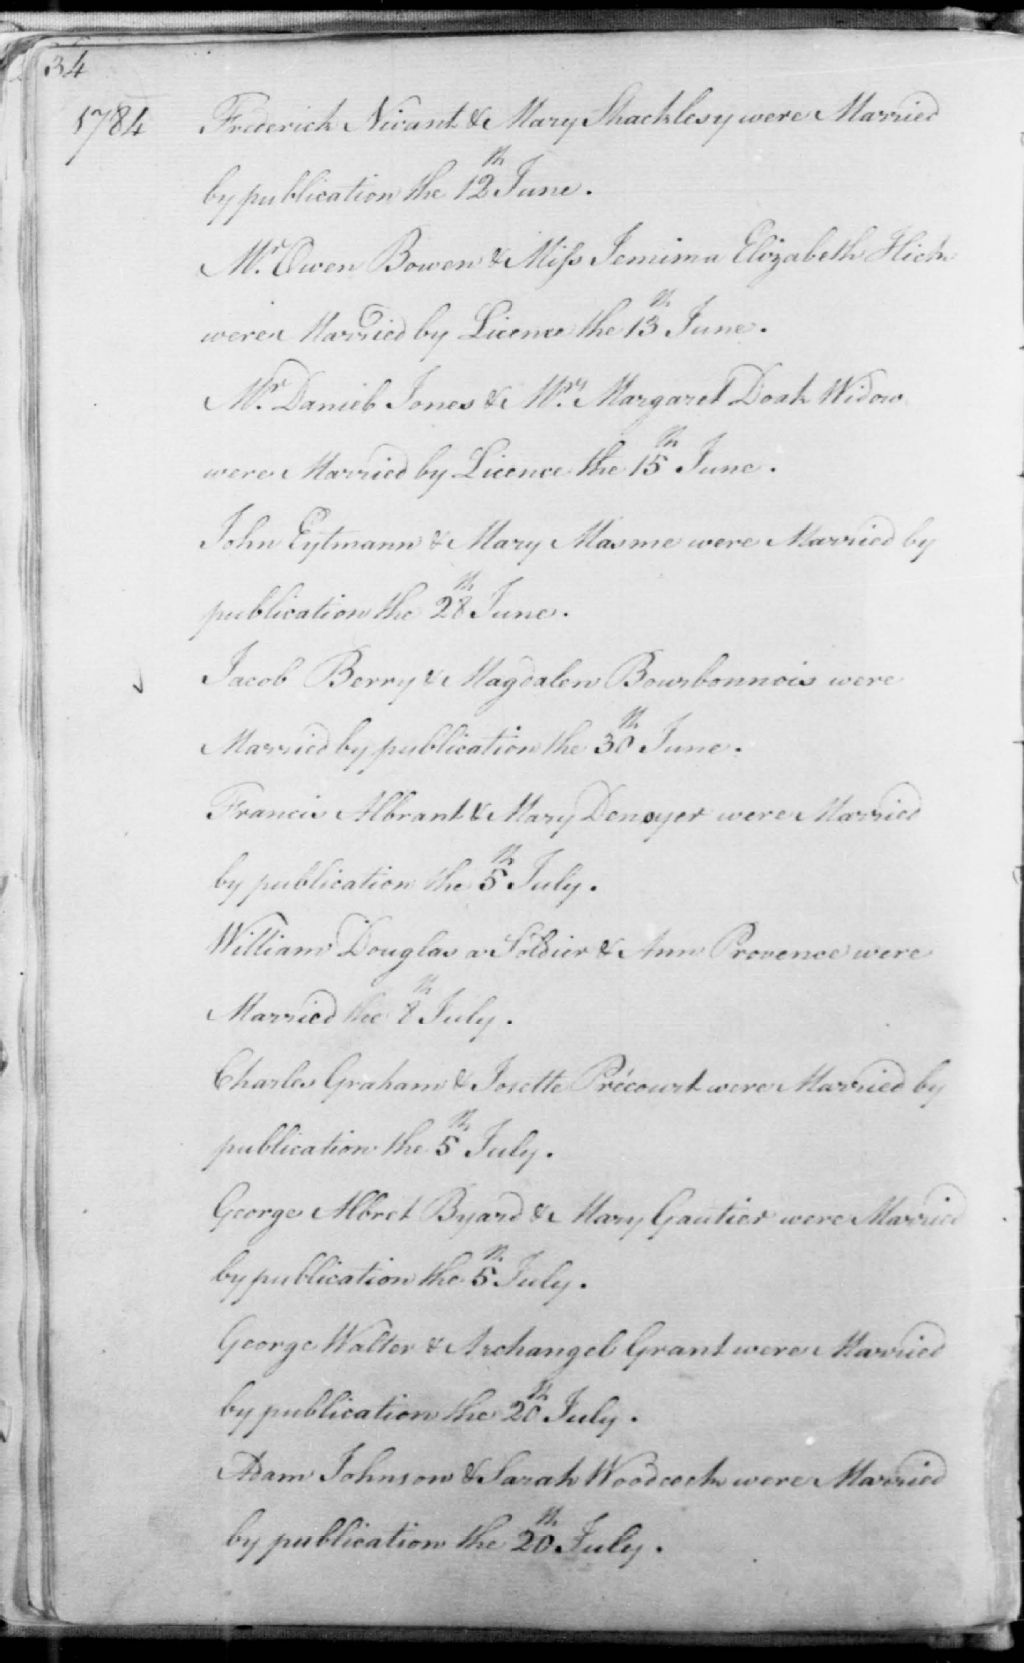 34
1784 Frederick Nivant & Mary Shacklesy were Married
by publication the 12th June.
Mr. Owen Bowen & Miss Jemima Elizabeth Hick
were Married by Licence the 13th June.
Mr. Daniel Jones & Mrs. Margaret Doak Widow
were Married by Licence the 15th June.
John Eytmann & Mary Masme were Married by
publication the 28th June.
Jacob Berry & Magdalen Bourbonnois were
Married by publication the 30th June.
Francis Albrant & Mary Denoyer were Married
by publication the 5th July.
William Douglas a Soldier & Ann Provence were
Married the 8th July.
Charles Graham & Josette Précourt were Married by
publication the 5th July.
George Albret Byard & Mary Gautier were Married
by publication the 5th July.
George Walter & Archangel Grant were Married
by publication the 20th July.
Adam Johnson & Sarah Woodcock were Married
by publication the 20th July.